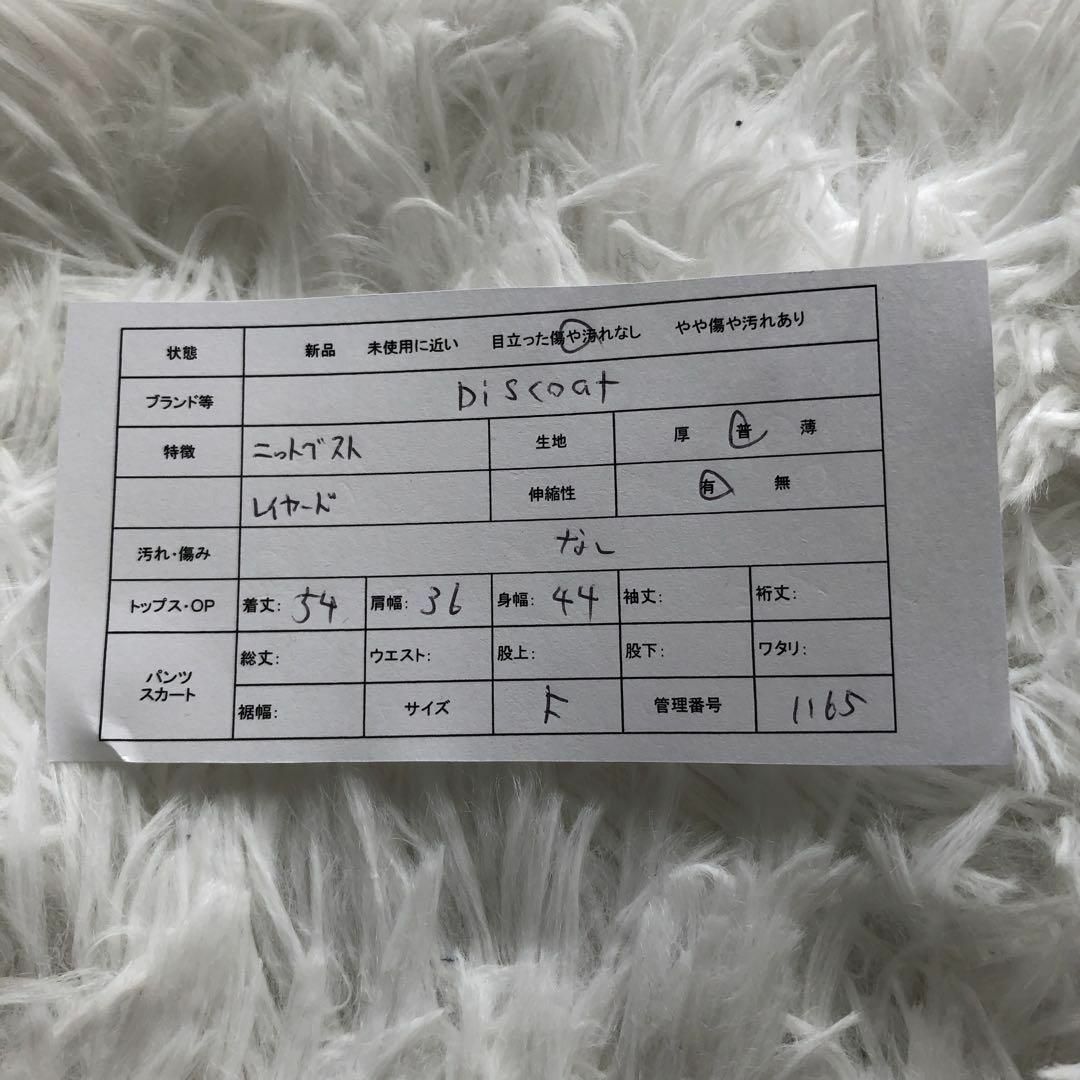 状態 新品 未使用に近い 目立った傷や汚れなし やや傷や汚れあり
ブランド等 Discoat
特徴 ニットベスト 生地 厚 普 薄
レイヤード 伸縮性 有 無
汚れ・傷み なし
トップス・OP 着丈: 54 肩幅: 36 身幅: 44 袖丈: 裄丈:
パンツ スカート 総丈: ウエスト: 股上: 股下: ワタリ:
裾幅: サイズ F 管理番号 1165